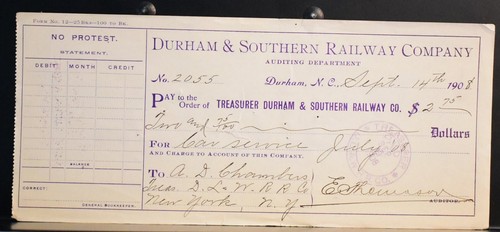 FORM NO. 12
NO PROTEST.
STATEMENT.
DEBIT MONTH CREDIT
BALANCE
CORRECT:
GENERAL BOOKKEEPER.
DURHAM & SOUTHERN RAILWAY COMPANY
AUDITING DEPARTMENT
No. 2055 Durham, N.C., Sept. 14th 1908
PAY to the Order of TREASURER DURHAM & SOUTHERN RAILWAY CO. $2 75
Two and 75/100 Dollars
FOR Car service July 08
AND CHARGE TO ACCOUNT OF THIS COMPANY.
TO A. D. Chambers
Treas. D. L. & W. R R Co
New York, N. Y.
AUDITOR.